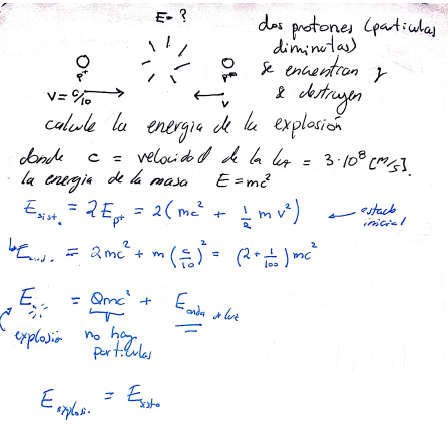 E = ?
dos protones (particulas
diminutas)
se encuentran y
se destruyen
p⁺
V = c/10
v
calcule la energia de la explosión
donde c = velocidad de la luz = 3·10⁸ [m/s].
la energia de la masa E = mc²
E sist. = 2E p⁺ = 2(mc² + 1/2 m v²) ← estado inicial
= 2mc² + m(c/10)² = (2 + 1/100) mc²
E = 0mc² + E onda de luz
explosión no hay
particulas
E explosi. = E sist.